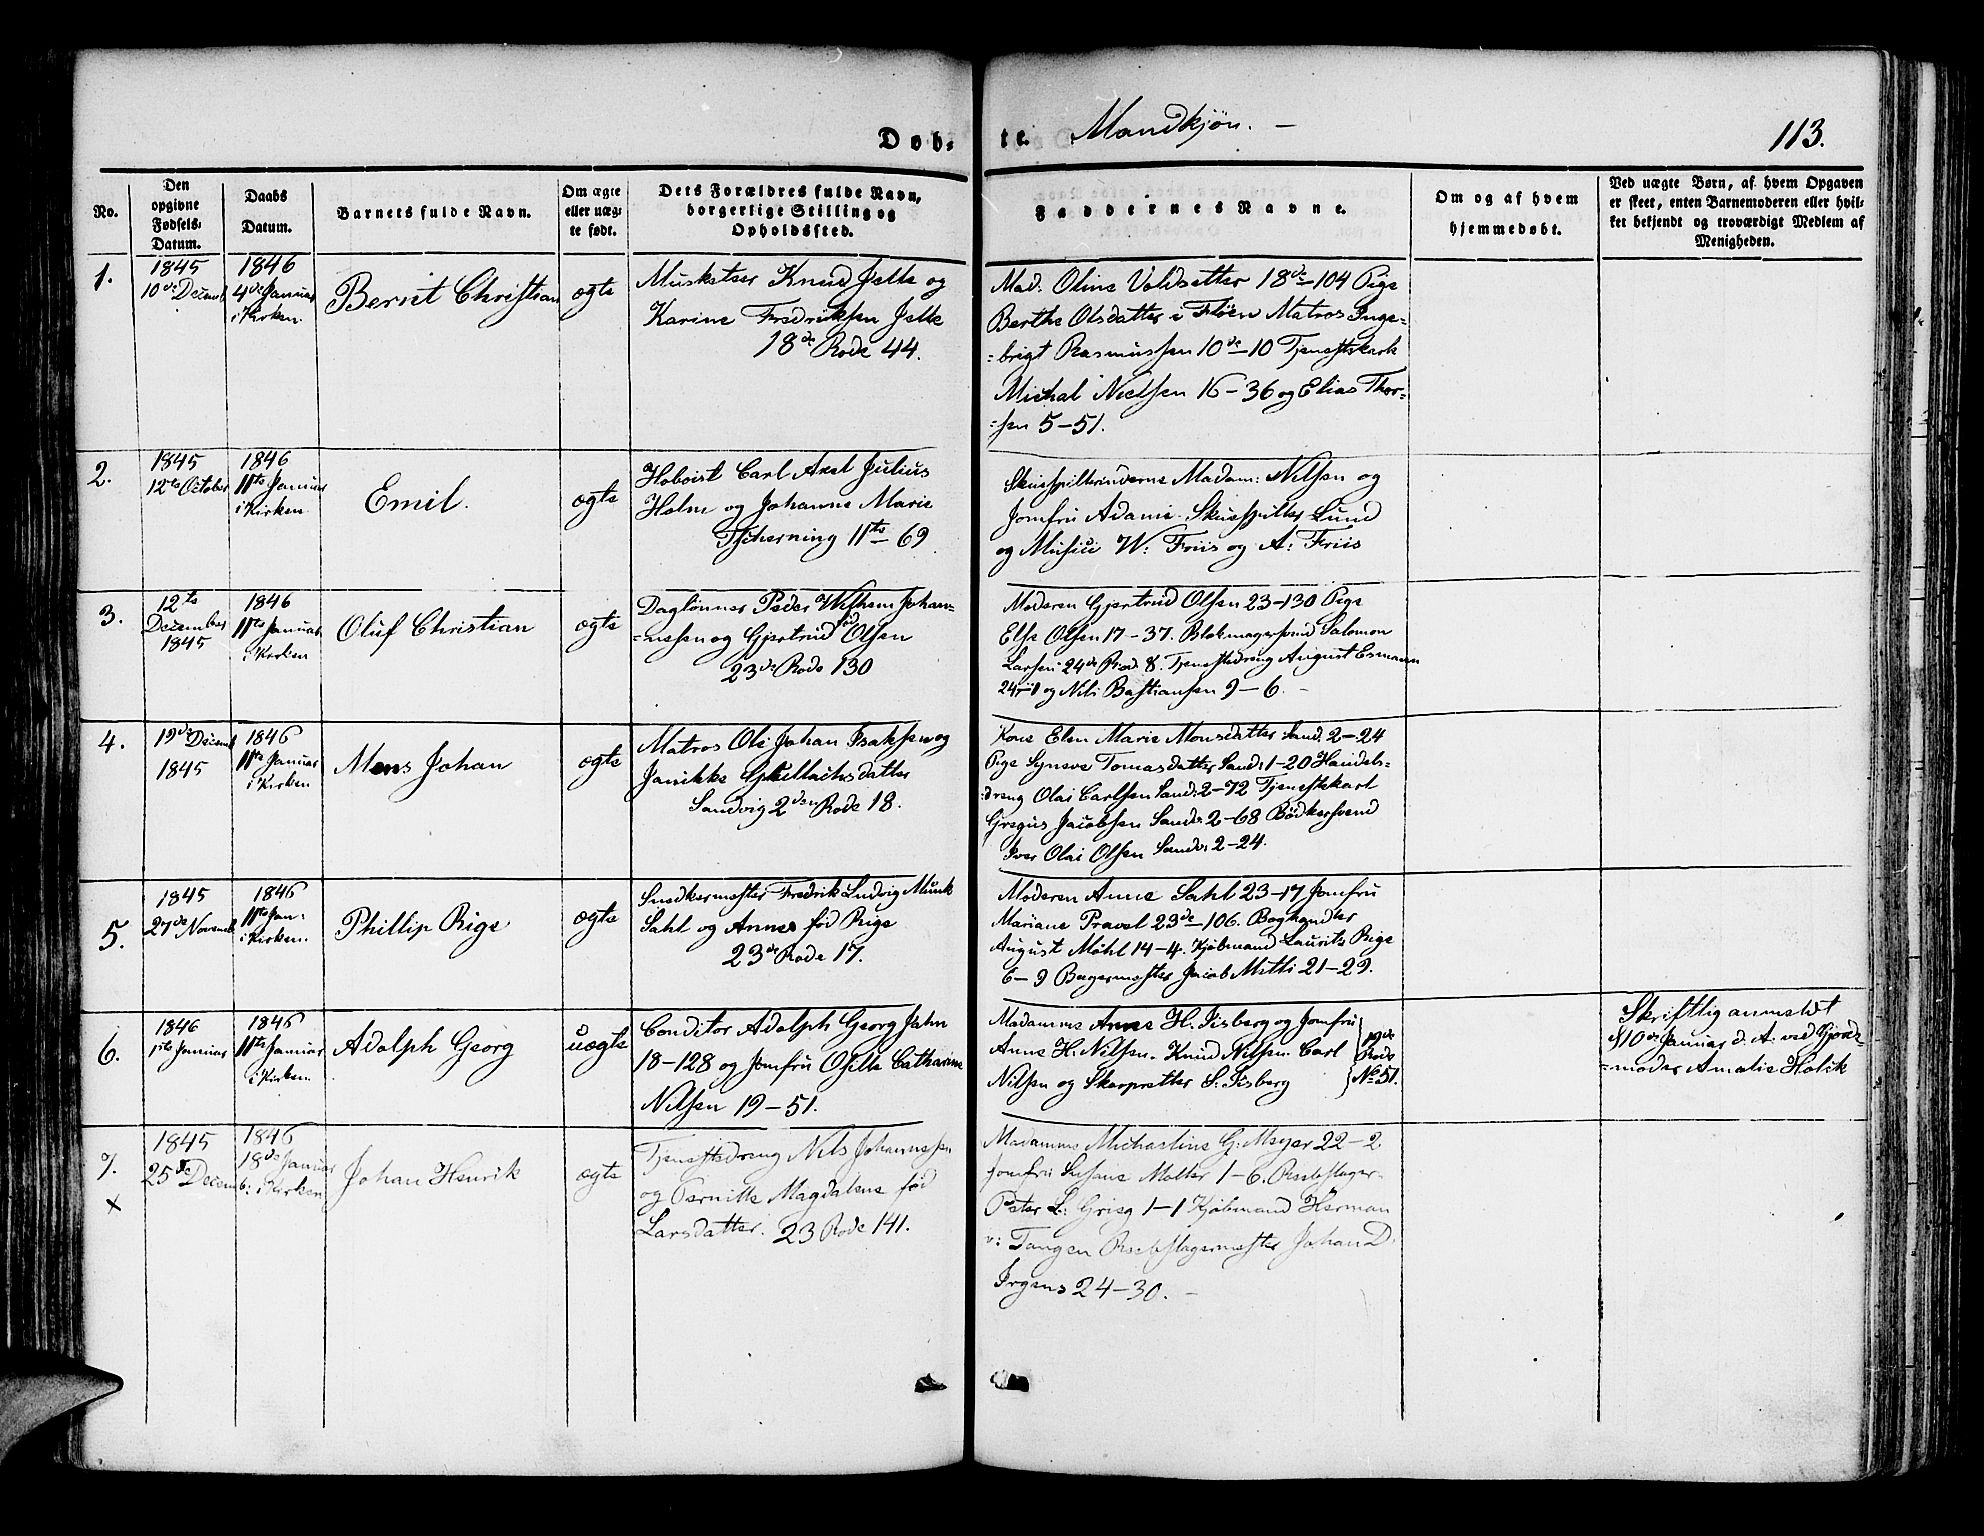 Døb-
te. Mandkjøn. —
113.
No.
Den
opgivne
Fødsels-
Datum.
Daabs
Datum.
Barnets fulde Navn.
Om ægte
eller uæg-
te født.
Dets Forældres fulde Navn,
borgerlige Stilling og
Opholdssted.
Faddernes Navne.
Om og af hvem
hjemmedøbt.
Ved uægte Børn, af hvem Opgaven
er skeet, enten Barnemoderen eller hvil-
ket bekjendt og troværdigt Medlem af
Menigheden.
1.
1845
10de Decemb
1846
4de Januar
i Kirken
Bernt Christian
ægte
Musketeer Knud Jelle og
Karine Fredriksen Jelle
18de Rode 44.
Mad. Oline Voldsetter 18de—104 Pige
Berthe Olsdatter i Fløen Matros Inge=
=brigt Rasmussen 10de—10 Tjenestekarl
Michal Nielsen 16—36 og Elias Thor=
=sen 5—51.
2.
1845
12te October
1846
11te Januar
i Kirken
Emil.
ægte
Hoboist Carl Axel Julius
Holm og Johanne Marie
Tscherning 11te—69
Skuespillerinderne Madam: Nilsen og
Jomfru Adami. Skuespiller Lund
og Musici W: Friis og A: Friis
3.
12te
December
1845
1846
11te Januar
i Kirken
Oluf Christian
ægte
Daglønner Peder Wilhem Johan=
=nesen og Gjertrud fød Olsen
23de Rode 130
Moderen Gjertrud Olsen 23—130 Pige
Else Olsen 17—37. Blokmagersvend Salomon
Larsen 24de Rod. 8. Tjenestedreng August Esmann
24— og Nils Bastiansen 9—6. —
4.
19de Decemb
1845
1846
11te Januar
i Kirken
Mons Johan
ægte
Matros Ole Johan Isaksen og
Janikke
Sandvig 2den Rode 18.
Kone Elen Marie Monsdatter Sand. 2—24
Pige Synneve Tomasdatter Sand: 1—20 Handels=
=dreng Olai Carlsen Sand: 2—72 Tjenestekarl
Gregus Jacobsen Sandv: 2—68 Bødkersvend
Iver Olai Olsen Sandv: 2—24.
5.
1845
27de Novemb
1846
11te Jan:
i Kirken.
Phillip Rige
ægte
Snedkermester Fredrik Ludvig Munk
Sahl og Anne fød Rige
23de Rode 17.
Moderen Anne Sahl 23—17 Jomfru
Mariane Pravel 23de—106. Boghandler
August Møhl 14—4. Kjøbmand Laurits Rige
6—9 Bagermester Jacob 21—29.
6.
1846
1ste Januar
1846
11te Januar
i Kirken
Adolph Georg
uægte
Conditor Adolph Georg Jahn
18—128 og Jomfru Osille Catharine
Nilsen 19—51.
Madamme Anne H. Tisberg og Jomfru
Anne H. Nilsen. Knud Nilsen. Carl
Nilsen og Skarpretter S. Tisberg
19de
Rode
No 51.
Skriftlig anmeldt
10de Januar d. A. ved Gjorde=
=moder Amalie Holik
7.
×
1845
25de Decemb:
1846
18de Januar
i Kirken
Johan Henrik
ægte
Tjenestedreng Nils Johannesen
og Pernille Magdalene fød
Larsdatter. 23 Rode 141.
Madamme Michaeline G: Meyer 22—2.
Jomfru Susane Molter 1—6. Rebslager
Peter L: Grieg 1—1 Kjøbmand Herman
v: Tangen Rebslagermester Johan D.
Irgens 24—30. —